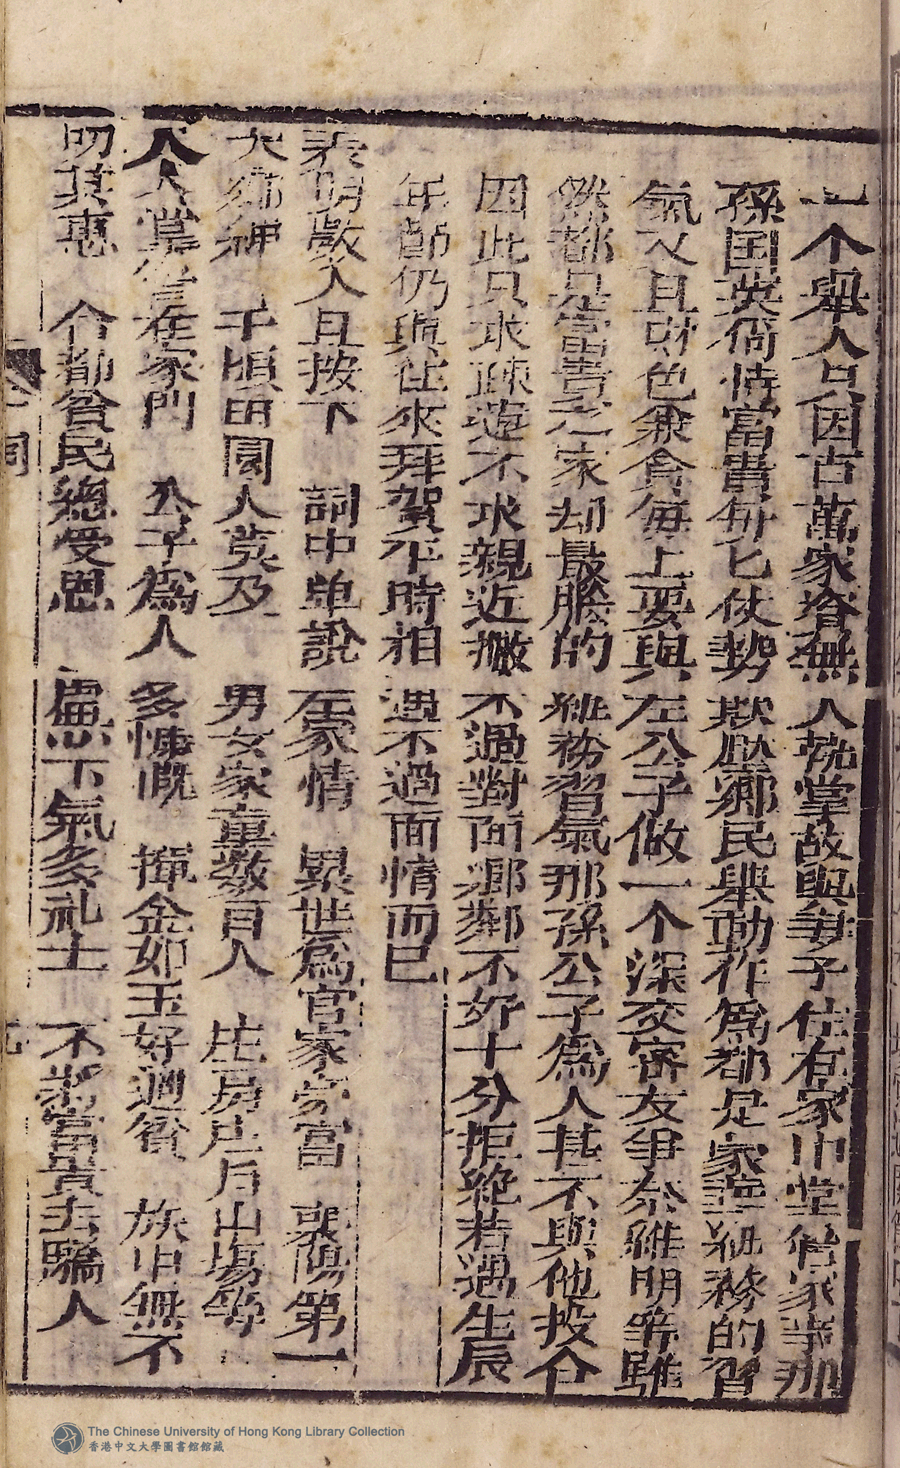 一个舉人只因百萬家當無人執掌故與妻子住在家中堂管家事那
孫国英倚恃富貴每匕仗勢欺壓鄉民舉動作為都是家□紈袴的習
氣又且財色兼貪每上要與左公子做一个深交密友爭奈維明等雖
然都是富貴之家却最膓的紈袴習氣那孫公子為人甚不與他投合
因此只求疎遠不求親近撇不過對面鄉鄰不好十分拒絶若遇生辰
年節仍與往來拜賀平時相遇不過面情而已
表明敵人且按下 詞中单說左家情 累世為官家豪富 襄陽第一
大鄉紳 千頃田園人莫及 男女家童數百人 庄房店户山塲等
人人掌管在家門 公子為人多慷慨 揮金如玉好週貧 族中無不
叨其惠 合郡貧民總受恩 虛心下氣多礼士 不將富貴去驕人
The Chinese University of Hong Kong Library Collection
香港中文大學圖書館館藏